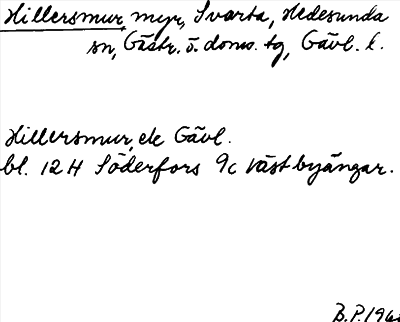 Hillersmur, myr, Svarta, Hedesunda
sn, Gästr. ö. doms. tg, Gävl. l.
Hillersmur, ek Gävl.
bl. 12H Söderfors 9c Västbyängar.
B.P. 196